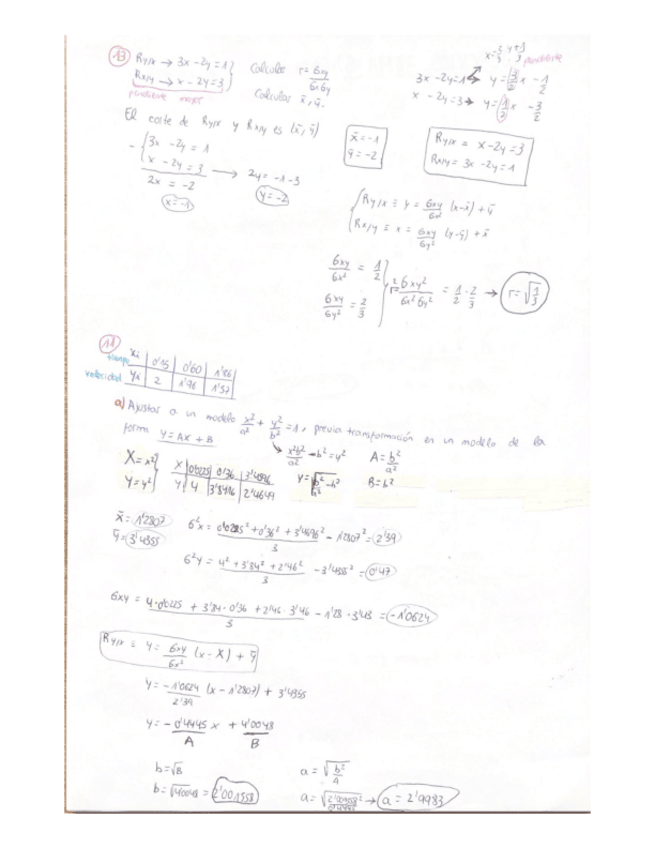 13) Ry/x → 3x - 2y = 1 } Calcular r = σxy / σxσy
Rx/y → x - 2y = 3 } Calculos x̄, ȳ.
pendiente mayor
pendiente
3x - 2y = 1 → y = 3/2 x - 1/2
x - 2y = 3 → y = 1/2 x - 3/2
El corte de Ry/x y Rx/y es (x̄, ȳ)
- { 3x - 2y = 1
x - 2y = 3 → 2y = -1 - 3
2x = -2
x = -1
y = -2
x̄ = -1
ȳ = -2
Ry/x = x - 2y = 3
Rx/y = 3x - 2y = 1
{ Ry/x ≡ y = σxy/σx² (x - x̄) + ȳ
Rx/y ≡ x = σxy/σy² (y - ȳ) + x̄
σxy/σx² = 1/2
σxy/σy² = 2/3
r² = σxy²/σx²σy² = 1/2 · 2/3 → r = √1/3
14)
tiempo xi | 0'15 | 0'60 | 1'86
velocidad yi | 2 | 1'96 | 1'57
a) Ajustar a un modelo x²/a² + y²/b² = 1, previa transformación en un modelo de la
forma Y = AX + B
X = x²
Y = y²
X | 0'0225 | 0'36 | 3'4596
Y | 4 | 3'8416 | 2'4649
A = b²/a²
B = b²
x̄ = 1'2807
ȳ = 3'4355
σ²x = 0'0225² + 0'36² + 3'4596² / 3 - 1'2807² = 2'39
σ²y = 4² + 3'84² + 2'46² / 3 - 3'4355² = 0'47
σxy = 4·0'0225 + 3'84·0'36 + 2'46·3'46 / 3 - 1'28·3'43 = -1'0624
Ry/x ≡ y = σxy/σx² (x - x̄) + ȳ
y = -1'0624/2'39 (x - 1'2807) + 3'4355
y = -0'4445 x + 4'0048
A B
b = √B
b = √4'0048 = 2'001558
a = √b²/A
a → a = 2'9983